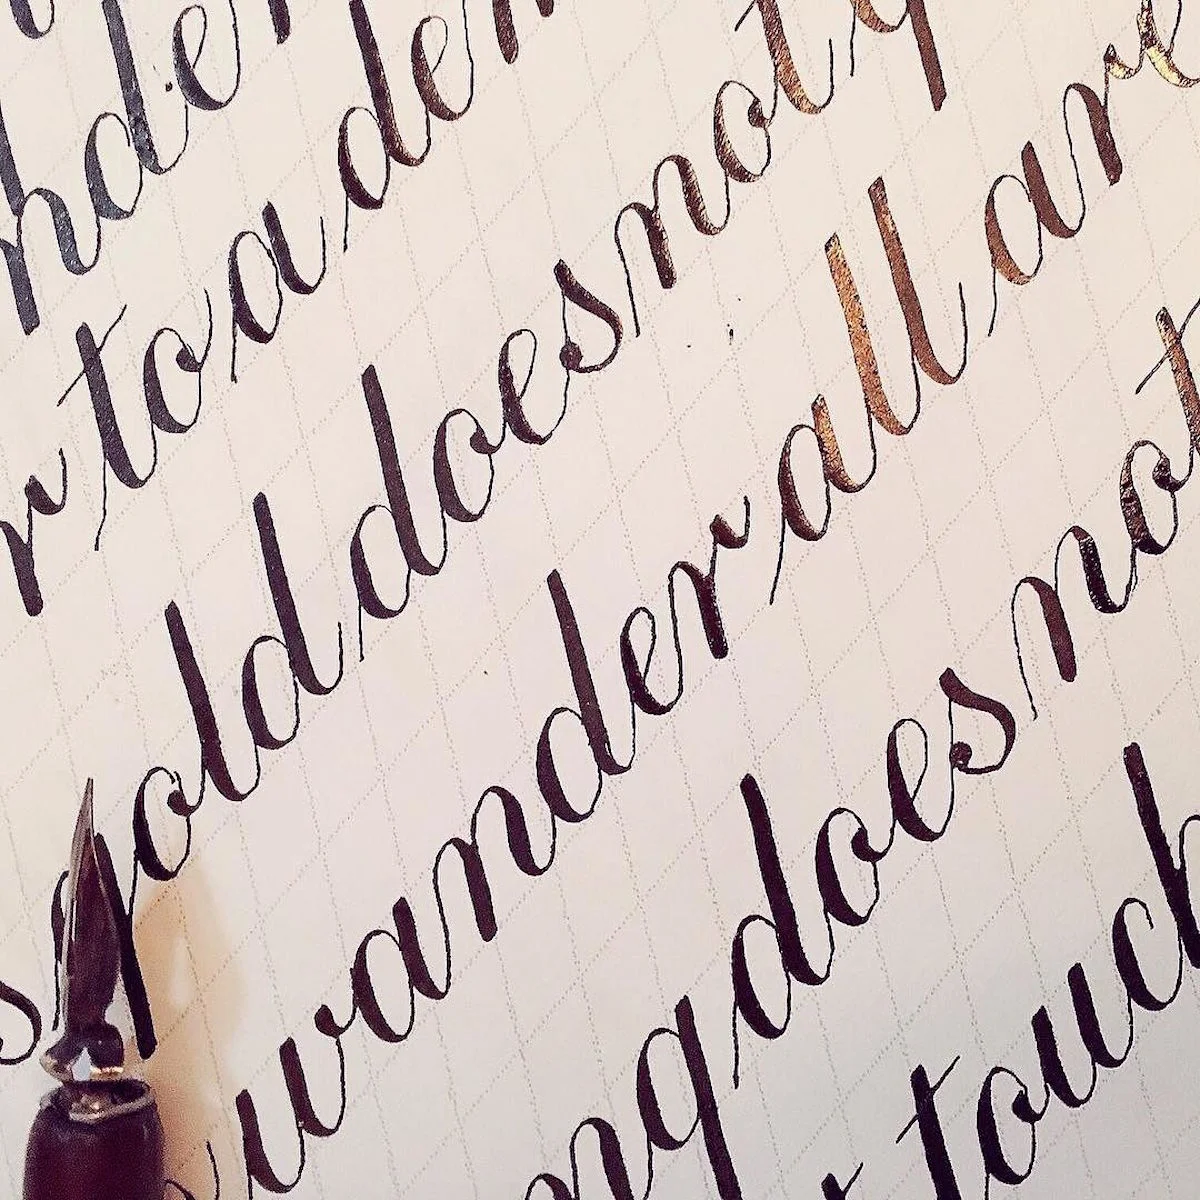 r to a
s gold does not g
wander all are
ng does not
touch